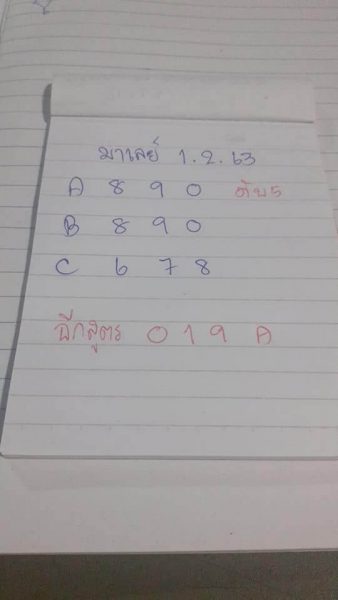 มาเลย์ 1.2.63
A 8 9 0 ดับ5
B 8 9 0
C 6 7 8
อีกสูตร 0 1 9 A